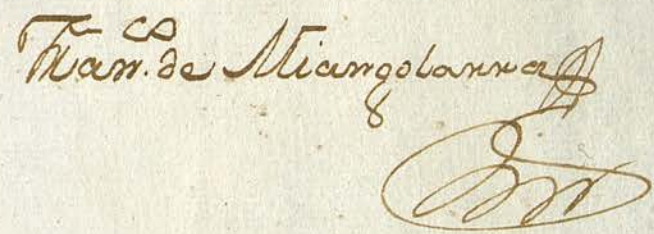 Fran.co de Miangolarra